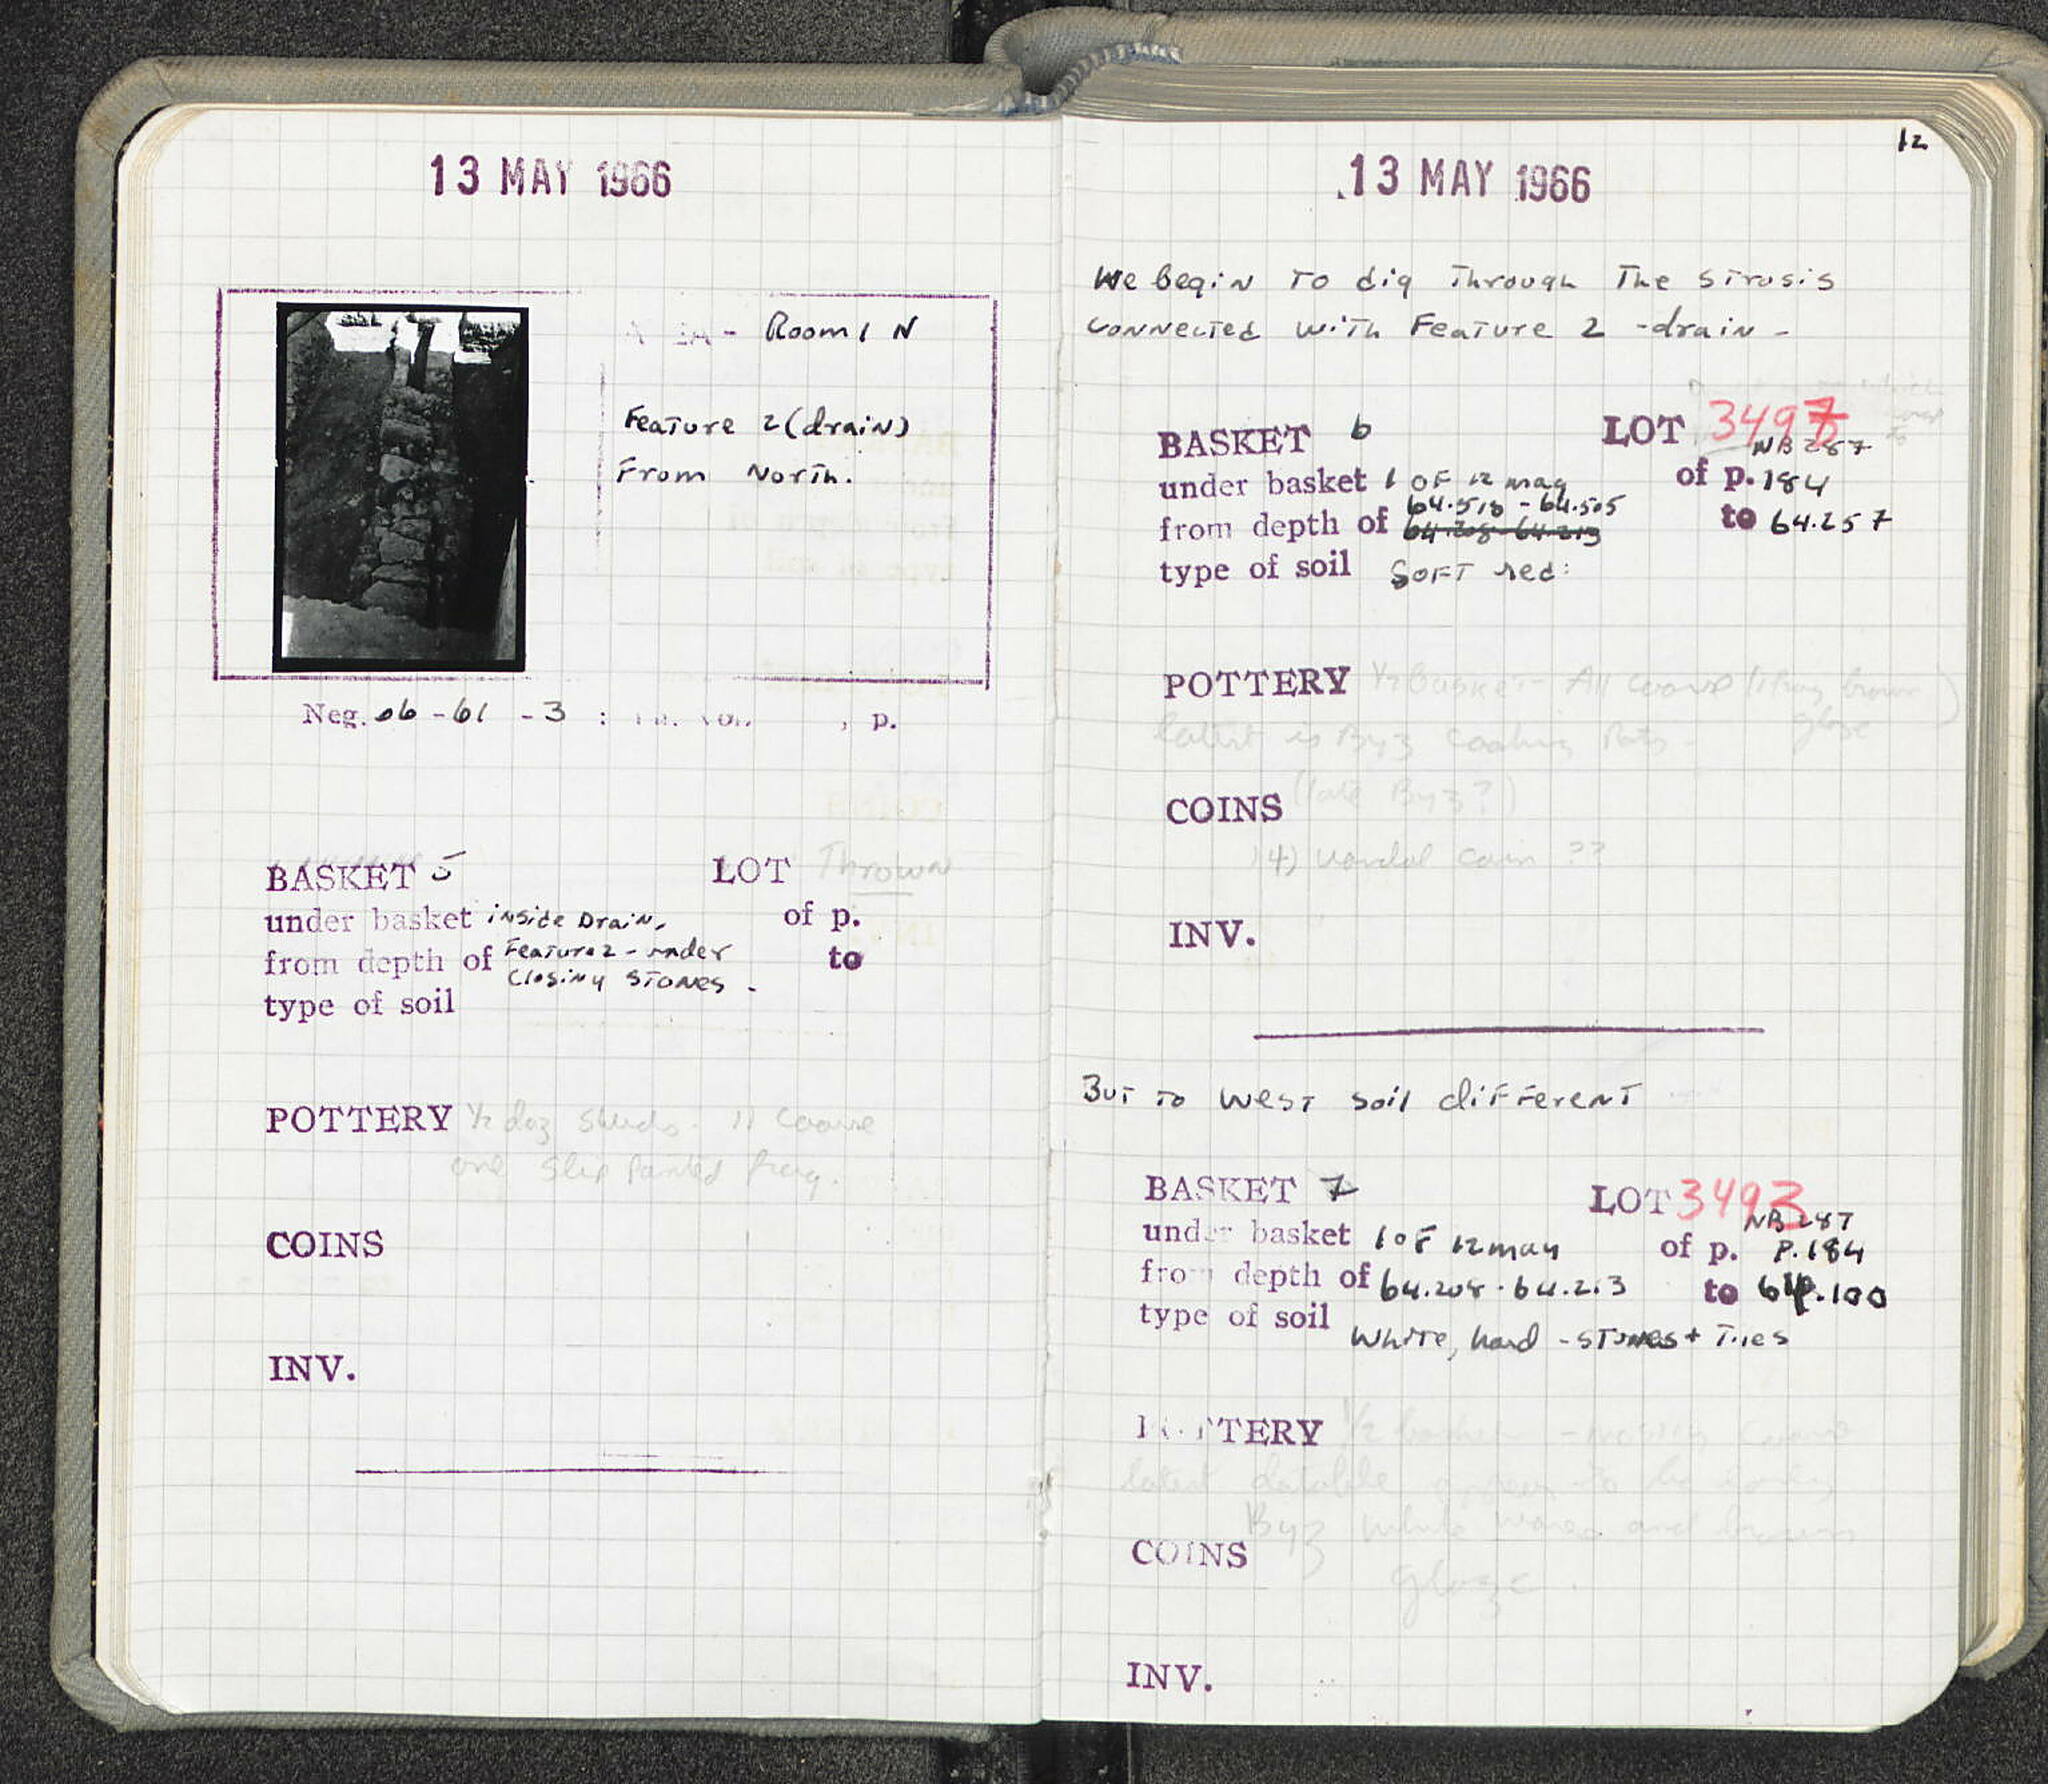 13 MAY 1966
Room 1 N
Feature 2 (drain)
From North.
Neg. 66 - 61 - 3 : , p.
BASKET 5 LOT Thrown
under basket inside Drain, of p.
from depth of Feature 2 - under to
closing stones.
type of soil
POTTERY 1/2 doz sherds. coarse
one slip painted frag.
COINS
INV.
12
13 MAY 1966
We begin to dig through the strosis
connected with Feature 2 - drain -
BASKET 6 LOT
NB 287
under basket 1 of 12 may of p. 184
64.518 - 64.505
from depth of 64.208 - 64.213 to 64.257
type of soil soft red:
POTTERY 1/2 Basket - All coarse (1 frag brown
glaze)
latest is Byz cooking Pots -
(late Byz?)
COINS
14) vandal coin ??
INV.
But to west soil different
BASKET 7 LOT 3493
NB 287
under basket 1 of 12 may of p. P. 184
from depth of 64.208 - 64.213 to 64.100
type of soil
white, hard - stones + tiles
POTTERY 1/2 basket - mostly coarse
latest datable appear to be
Byz white ware and brown
COINS
glaze.
INV.